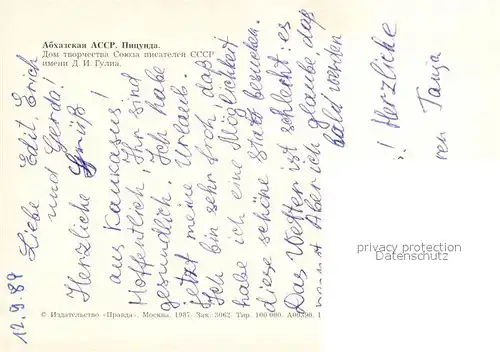 Абхазская АССР. Пицунда.
Дом творчества Союза писателей СССР
имени Д. И. Гулиа.
12.9.89
Liebe Edit, Erich
und Gerda!
Herzliche Grüß
aus Kaukasus!
Hoffentlich, Ihr sind
gesundlich. Ich habe
jetzt meine Urlaub.
Ich bin sehr froh, daß
habe ich eine Möglichkeit
diese schöne Stadt besuchen.
Das Wetter ist schlecht: es
Aber ich glaube, daß
bald werden
! Herzliche
Tanja
privacy protection
watermark
© Издательство «Правда». Москва. 1987. Зак. 3062. Тир. 100 000.